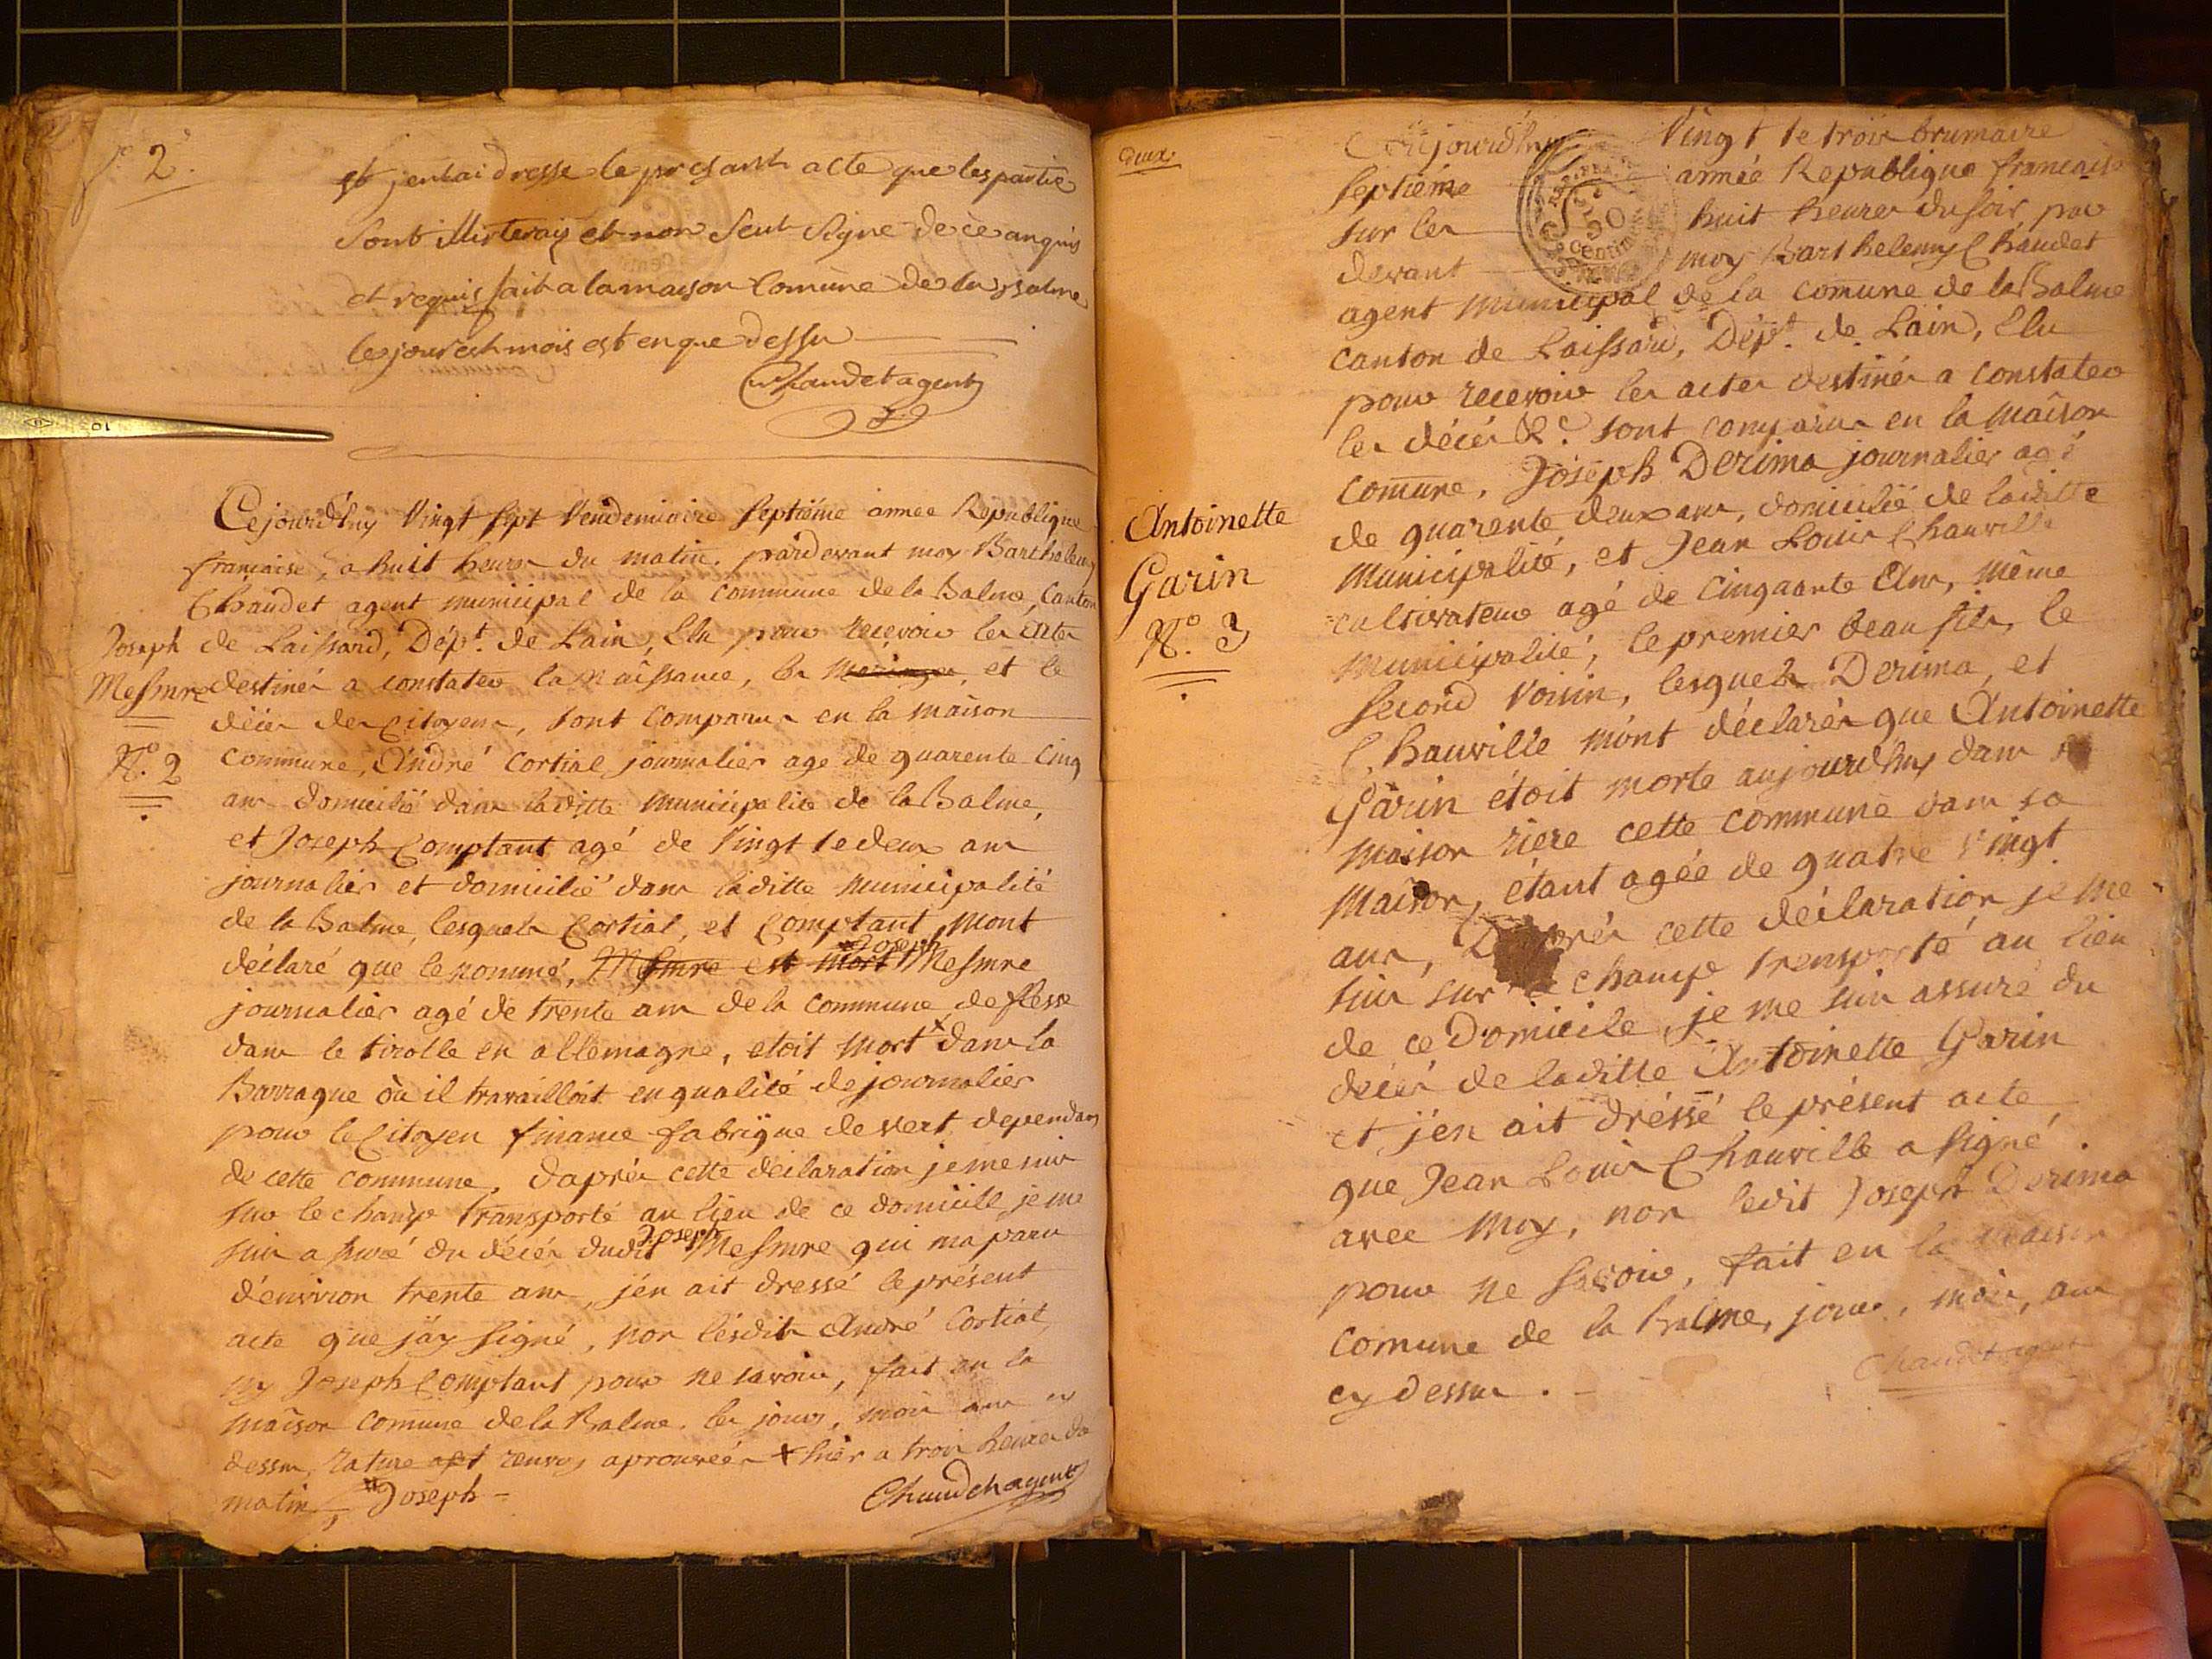 2.
et jentai dresse le presant acte que les partie
sont
et non seut signe de ce anquis
et requis fait a la maison Comune de la balme
le jour est mois est en que dessu
Chaudet agent
Cejourd'huy Vingt sept Vendemiaire septiéme année Republique
francaise, a huit heures du matin, pardevant moy Barthelemy
Chaudet agent municipal de la commune de la Balme, Canton
de Laissard, Dépt. de Lain, Elu pour recevoir les actes
destinés a constater la Naissance, les Mariages, et le
décés des Citoyens, sont Comparus en la maison
Commune, André Cortial journalier age de quarente Cinq
ans domicilié dans laditte municipalité de la Balme,
et Joseph Comptant agé de Vingt te deux ans
journalier et domicilié dans laditte municipalité
de la Balme, lesquels Cortial, et Comptant, mont
déclaré que le nommé, Mesmre est mort Joseph Mesmre
journalier agé de trente ans de la commune de flesse
dans le tirolle en allemagne, etoit mort + dans la
Barraque où il travailloit en qualité de journalier
pour le Citoyen finance fabrique de vert dependant
de cette commune, daprés cette declaration je me suis
sur le champ transporté au lieu de ce domicile je me
suis assuré du décés dudit Joseph Mesmre qui ma paru
d'environ trente ans, j'en ait dressé le présent
acte que j'ay signé, non lesdits André Cortial,
ny Joseph Comptant pour ne savoir, fait en la
maison comune de la Balme, les jour, mois ans cy
dessus, rature et renvoy aprouvées + hier a trois heures du
matin, Joseph
Chaudet agent
Joseph
Mesmre
No. 2
deux
Cejourd'huy Vingt te trois brumaire
septiéme année Republique francaise
sur les huit heures du soir, par
devant moy Barthelemy Chaudet
agent municipal de la comune de la Balme
canton de Laissard, Dépt. de Lain, Elu
pour recevoir les actes destinés a constater
les décés &c. sont comparus en la maison
comune, Joseph Derima journalier agé
de quarente deux ans, domicilié de laditte
Municipalité, et Jean Louis Chauville
cultivateur agé de Cinquante Ans, même
municipalité, le premier beau fils, le
second Voisin, lesquels Derima, et
Chauville m'ont déclarés que Antoinette
Garin étoit morte aujourd'huy dans sa
maison riere cette commune dans sa
maison, étant agée de quatre vingt
ans, D'aprés cette déclaration je me
suis sur le champ transporté au lieu
de ce domicile, je me suis assuré du
décés de laditte Antoinette Garin
et j'en ait dréssé le présent acte
que Jean Louis Chauville a signé
avec moy, non ledit Joseph Derima
pour ne savoir, fait en la maison
Comune de la Balme, jour, mois, ans
cy dessus.
Chaudet agent
Antoinette
Garin
No. 3
REP. FRA.
50
Centimes